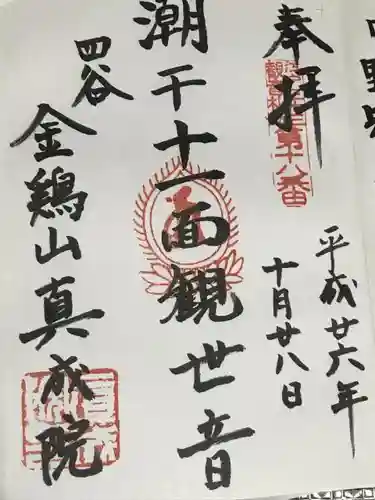 奉拝
第十八番
平成廿六年
十月廿八日
潮干十一面観世音
四谷
金鶏山真成院